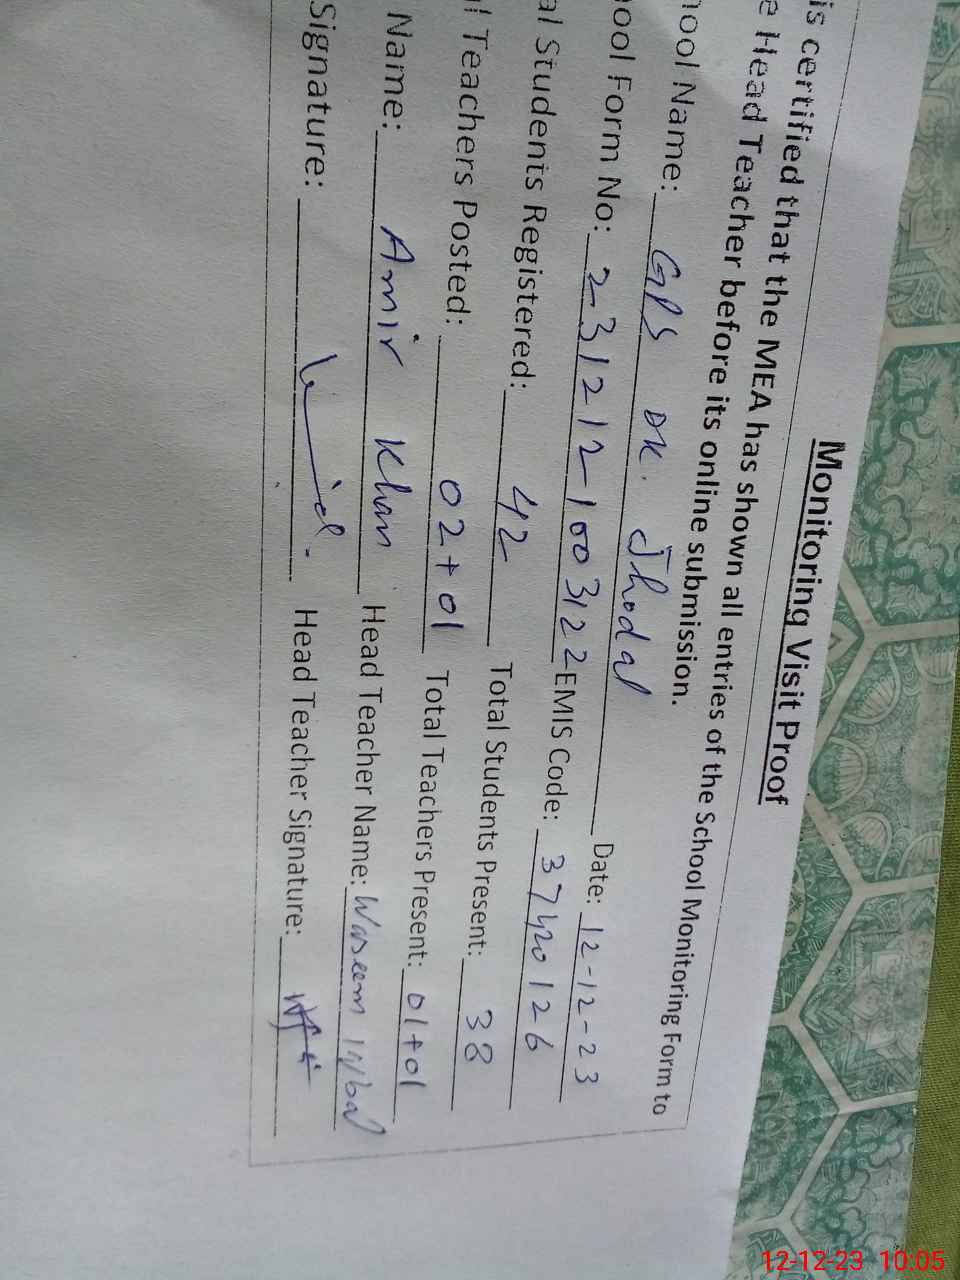 Monitoring Visit Proof
is certified that the MEA has shown all entries of the School Monitoring Form to
e Head Teacher before its online submission.
hool Name: GPS DK. Jhodal Date: 12-12-23
ool Form No: 231212-1003122 EMIS Code: 37420126
al Students Registered: 42 Total Students Present: 38
l Teachers Posted: 02+01 Total Teachers Present: 01+01
Name: Amir Khan Head Teacher Name: Waseem Iqbal
Signature: Head Teacher Signature:
12-12-23 10:05